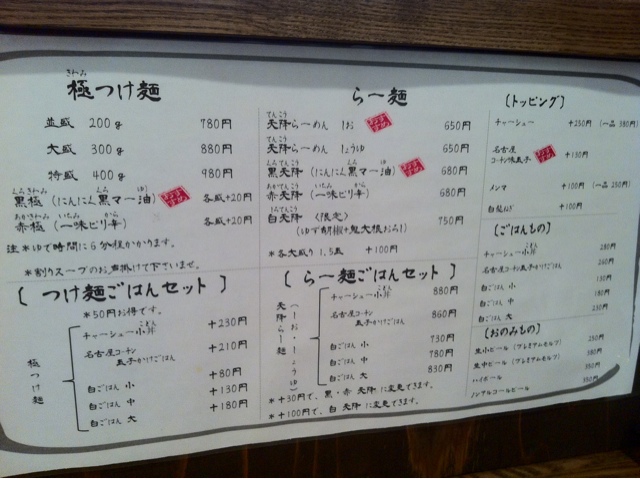 きわみ
極つけ麺
並盛 200g 780円
大盛 300g 880円
特盛 400g 980円
くろきわみ ゆ
黒極 (にんにん黒マー油) 各盛+20円
あかきわみ いちみ から
赤極 (一味ピリ辛) 各盛+20円
注*ゆで時間に6分程かかります。
*割りスープのお声掛けて下さいませ。
[つけ麺ごはんセット]
*50円お得です。
極つけ麺
チャーシュー小丼 +230円
名古屋コーチン
玉子かけごはん +210円
白ごはん 小 +80円
白ごはん 中 +130円
白ごはん 大 +180円
らー麺
てんこう
天降らーめん しお 650円
てんこう
天降らーめん しょうゆ 650円
黒天降 (にんにん黒マー油) 680円
赤天降 (一味ピリ辛) 680円
白天降 〈限定〉
(ゆず胡椒+鬼大根おろし) 750円
*各大盛り 1.5玉 +100円
[らー麺ごはんセット]
天降らー麺
(しお・しょうゆ)
チャーシュー小丼 880円
名古屋コーチン
玉子かけごはん 860円
白ごはん 小 730円
白ごはん 中 780円
白ごはん 大 830円
*+30円で、黒・赤 天降 に変更できます。
*+100円で、白 天降 に変更できます。
[トッピング]
チャーシュー +250円
名古屋
コーチン味玉子 +130円
メンマ +100円
白髪ねぎ +100円
[ごはんもの]
チャーシュー小丼 280円
名古屋コーチン玉子かけごはん 260円
白ごはん 小 130円
白ごはん 中 180円
白ごはん 大 230円
[おのみもの]
生小ビール (プレミアムモルツ) 250円
生中ビール (プレミアムモルツ) 350円
ハイボール 350円
ノンアルコールビール 350円